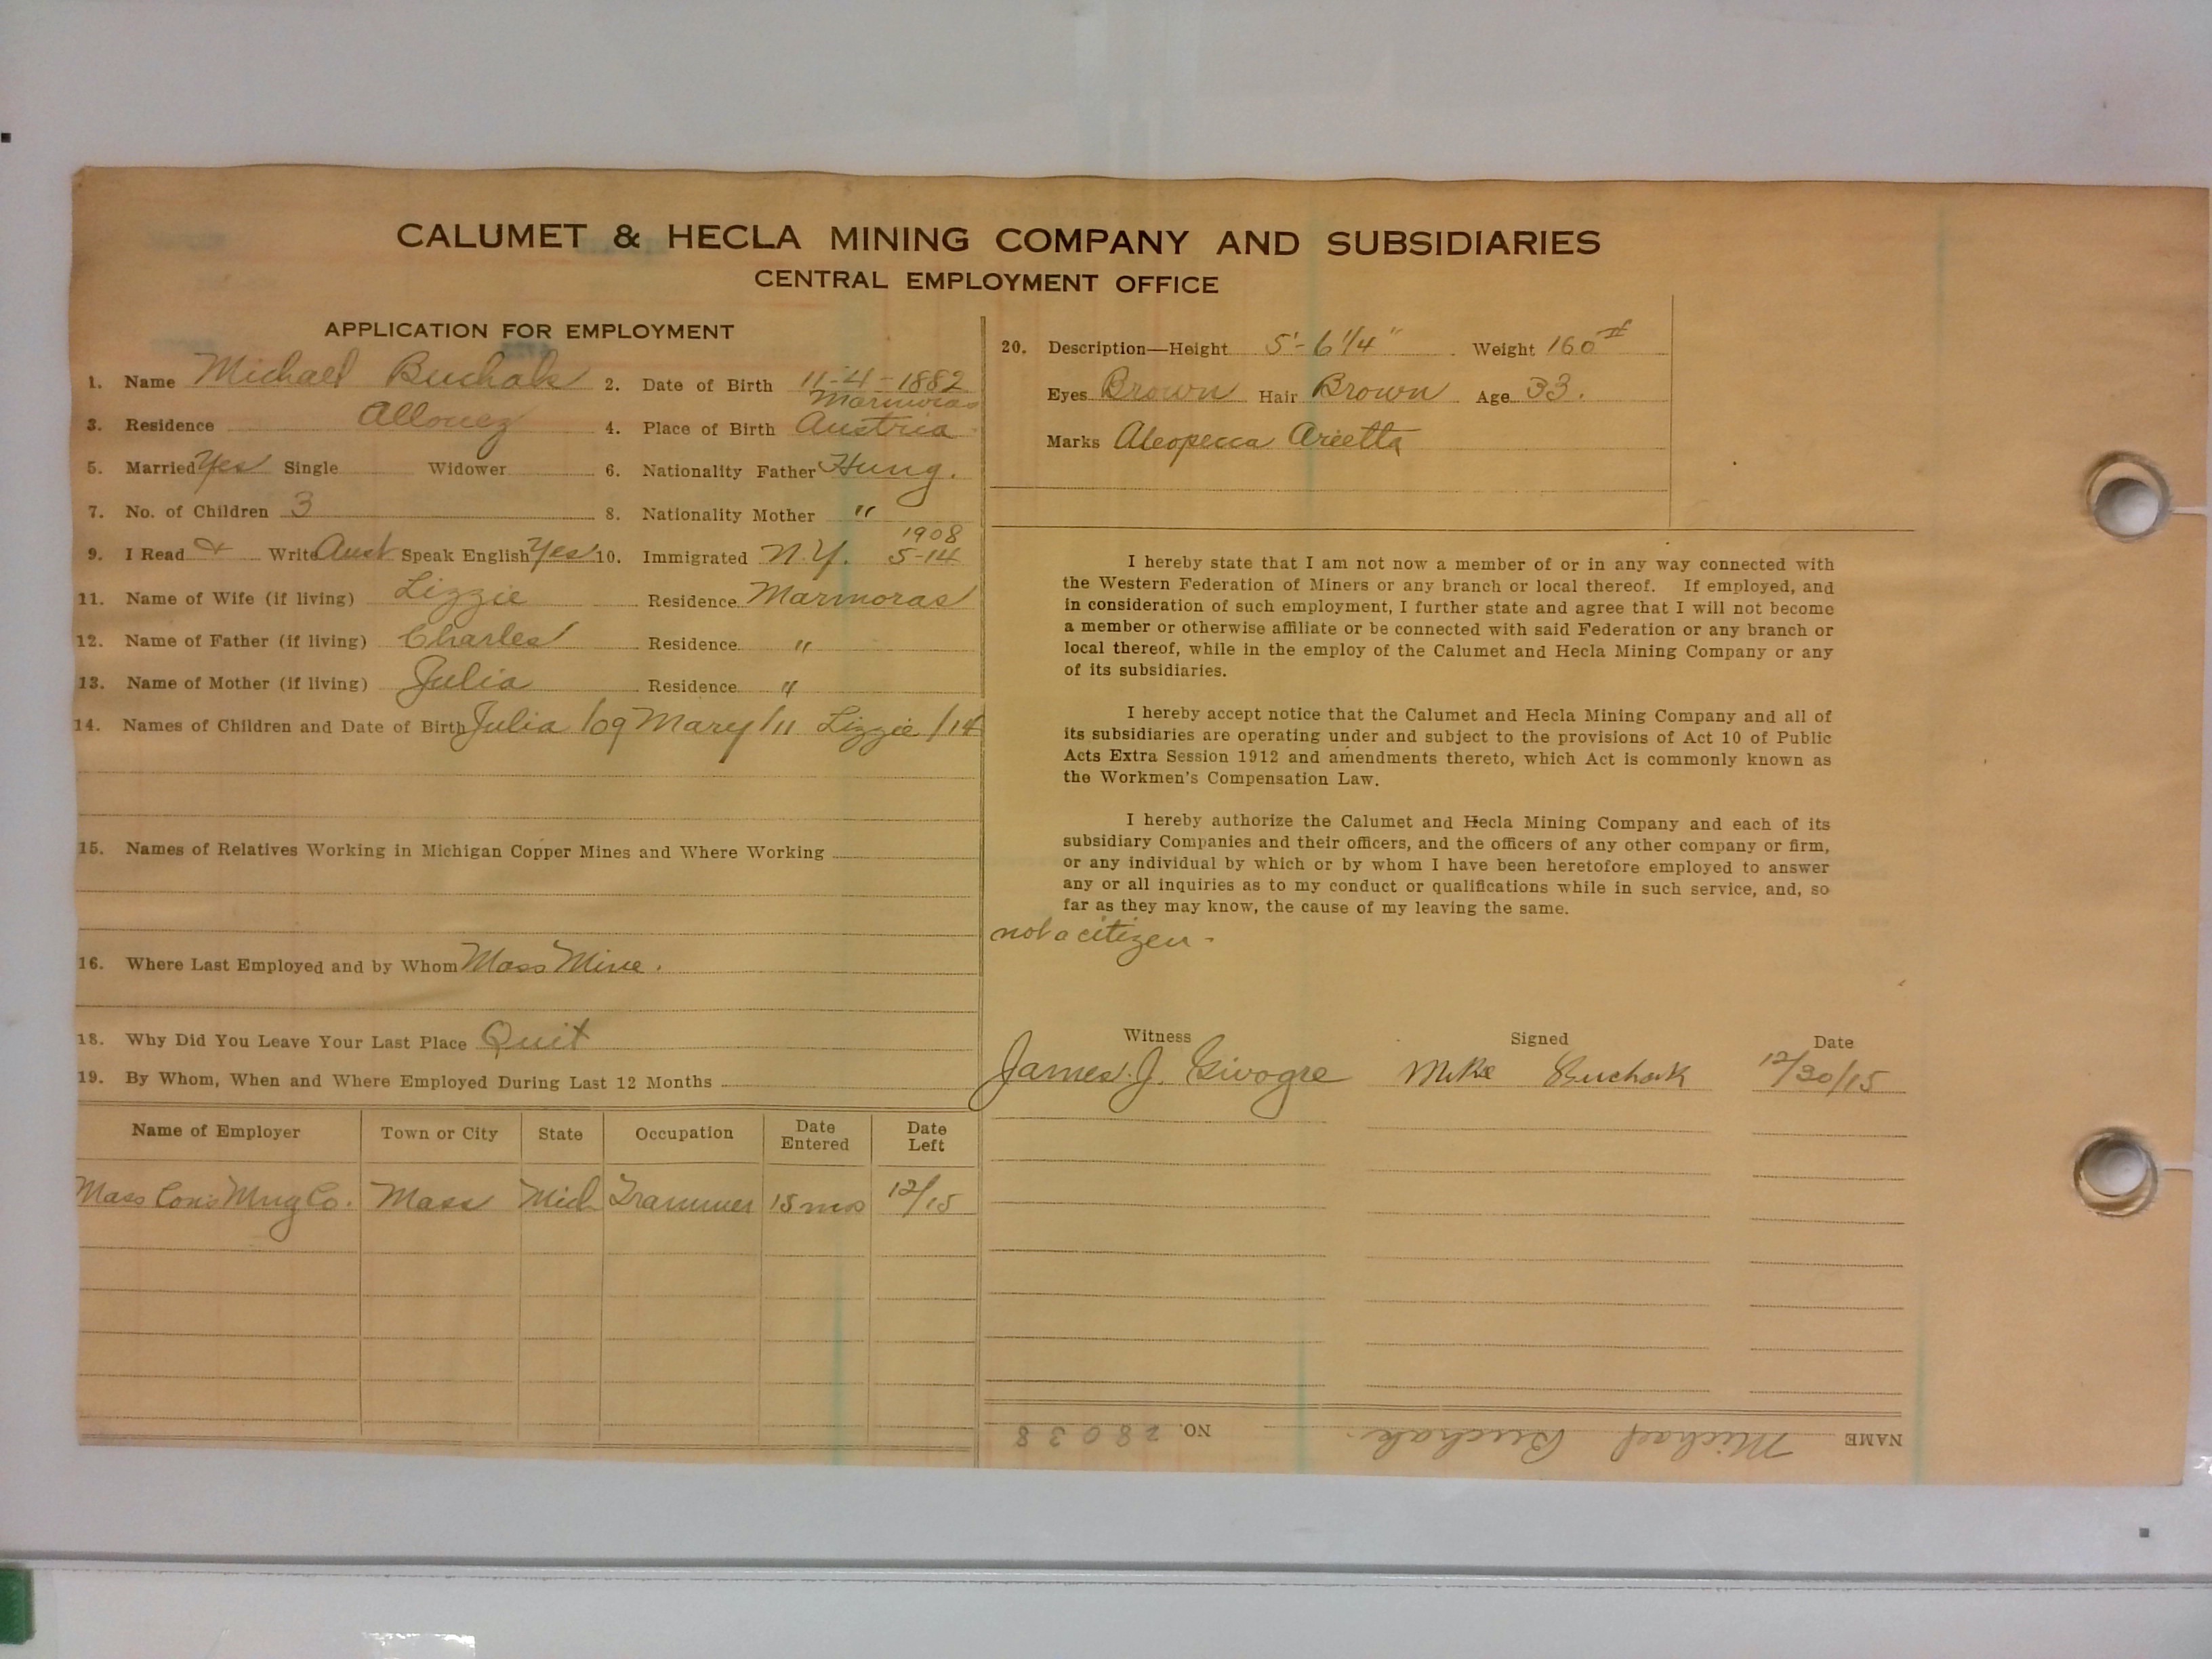 CALUMET & HECLA MINING COMPANY AND SUBSIDIARIES
CENTRAL EMPLOYMENT OFFICE
APPLICATION FOR EMPLOYMENT
1. Name Michael Buchak 2. Date of Birth 11-21-1882
Marmoras
3. Residence Allouez 4. Place of Birth Austria
5. Married Yes Single Widower 6. Nationality Father Hung.
7. No. of Children 3 8. Nationality Mother "
1908
9. I Read & Write Aust Speak English Yes 10. Immigrated N.Y. 5-14
11. Name of Wife (if living) Lizzie Residence Marmoras
12. Name of Father (if living) Charles Residence "
13. Name of Mother (if living) Julia Residence "
14. Names of Children and Date of Birth Julia /09 Mary /11 Lizzie /14
15. Names of Relatives Working in Michigan Copper Mines and Where Working
16. Where Last Employed and by Whom Mass Mine.
18. Why Did You Leave Your Last Place Quit
19. By Whom, When and Where Employed During Last 12 Months
Name of Employer Town or City State Occupation Date Entered Date Left
Mass Cons Mng Co. Mass Mich Trammer 15 mos 12/15
20. Description—Height 5'-6 1/4" Weight 160#
Eyes Brown Hair Brown Age 33.
Marks Aleopecca Arietta
I hereby state that I am not now a member of or in any way connected with
the Western Federation of Miners or any branch or local thereof. If employed, and
in consideration of such employment, I further state and agree that I will not become
a member or otherwise affiliate or be connected with said Federation or any branch or
local thereof, while in the employ of the Calumet and Hecla Mining Company or any
of its subsidiaries.
I hereby accept notice that the Calumet and Hecla Mining Company and all of
its subsidiaries are operating under and subject to the provisions of Act 10 of Public
Acts Extra Session 1912 and amendments thereto, which Act is commonly known as
the Workmen's Compensation Law.
I hereby authorize the Calumet and Hecla Mining Company and each of its
subsidiary Companies and their officers, and the officers of any other company or firm,
or any individual by which or by whom I have been heretofore employed to answer
any or all inquiries as to my conduct or qualifications while in such service, and, so
far as they may know, the cause of my leaving the same.
not a citizen -
Witness Signed Date
James. J. Mike Buchak 12/30/15
NAME Michael Buchak. NO. 28038